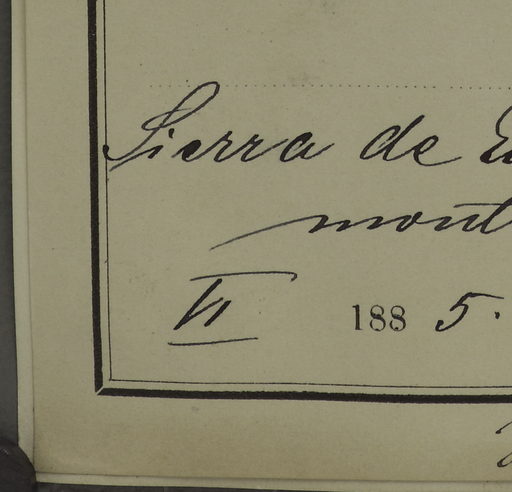 Sierra de
mont
VI 1885.